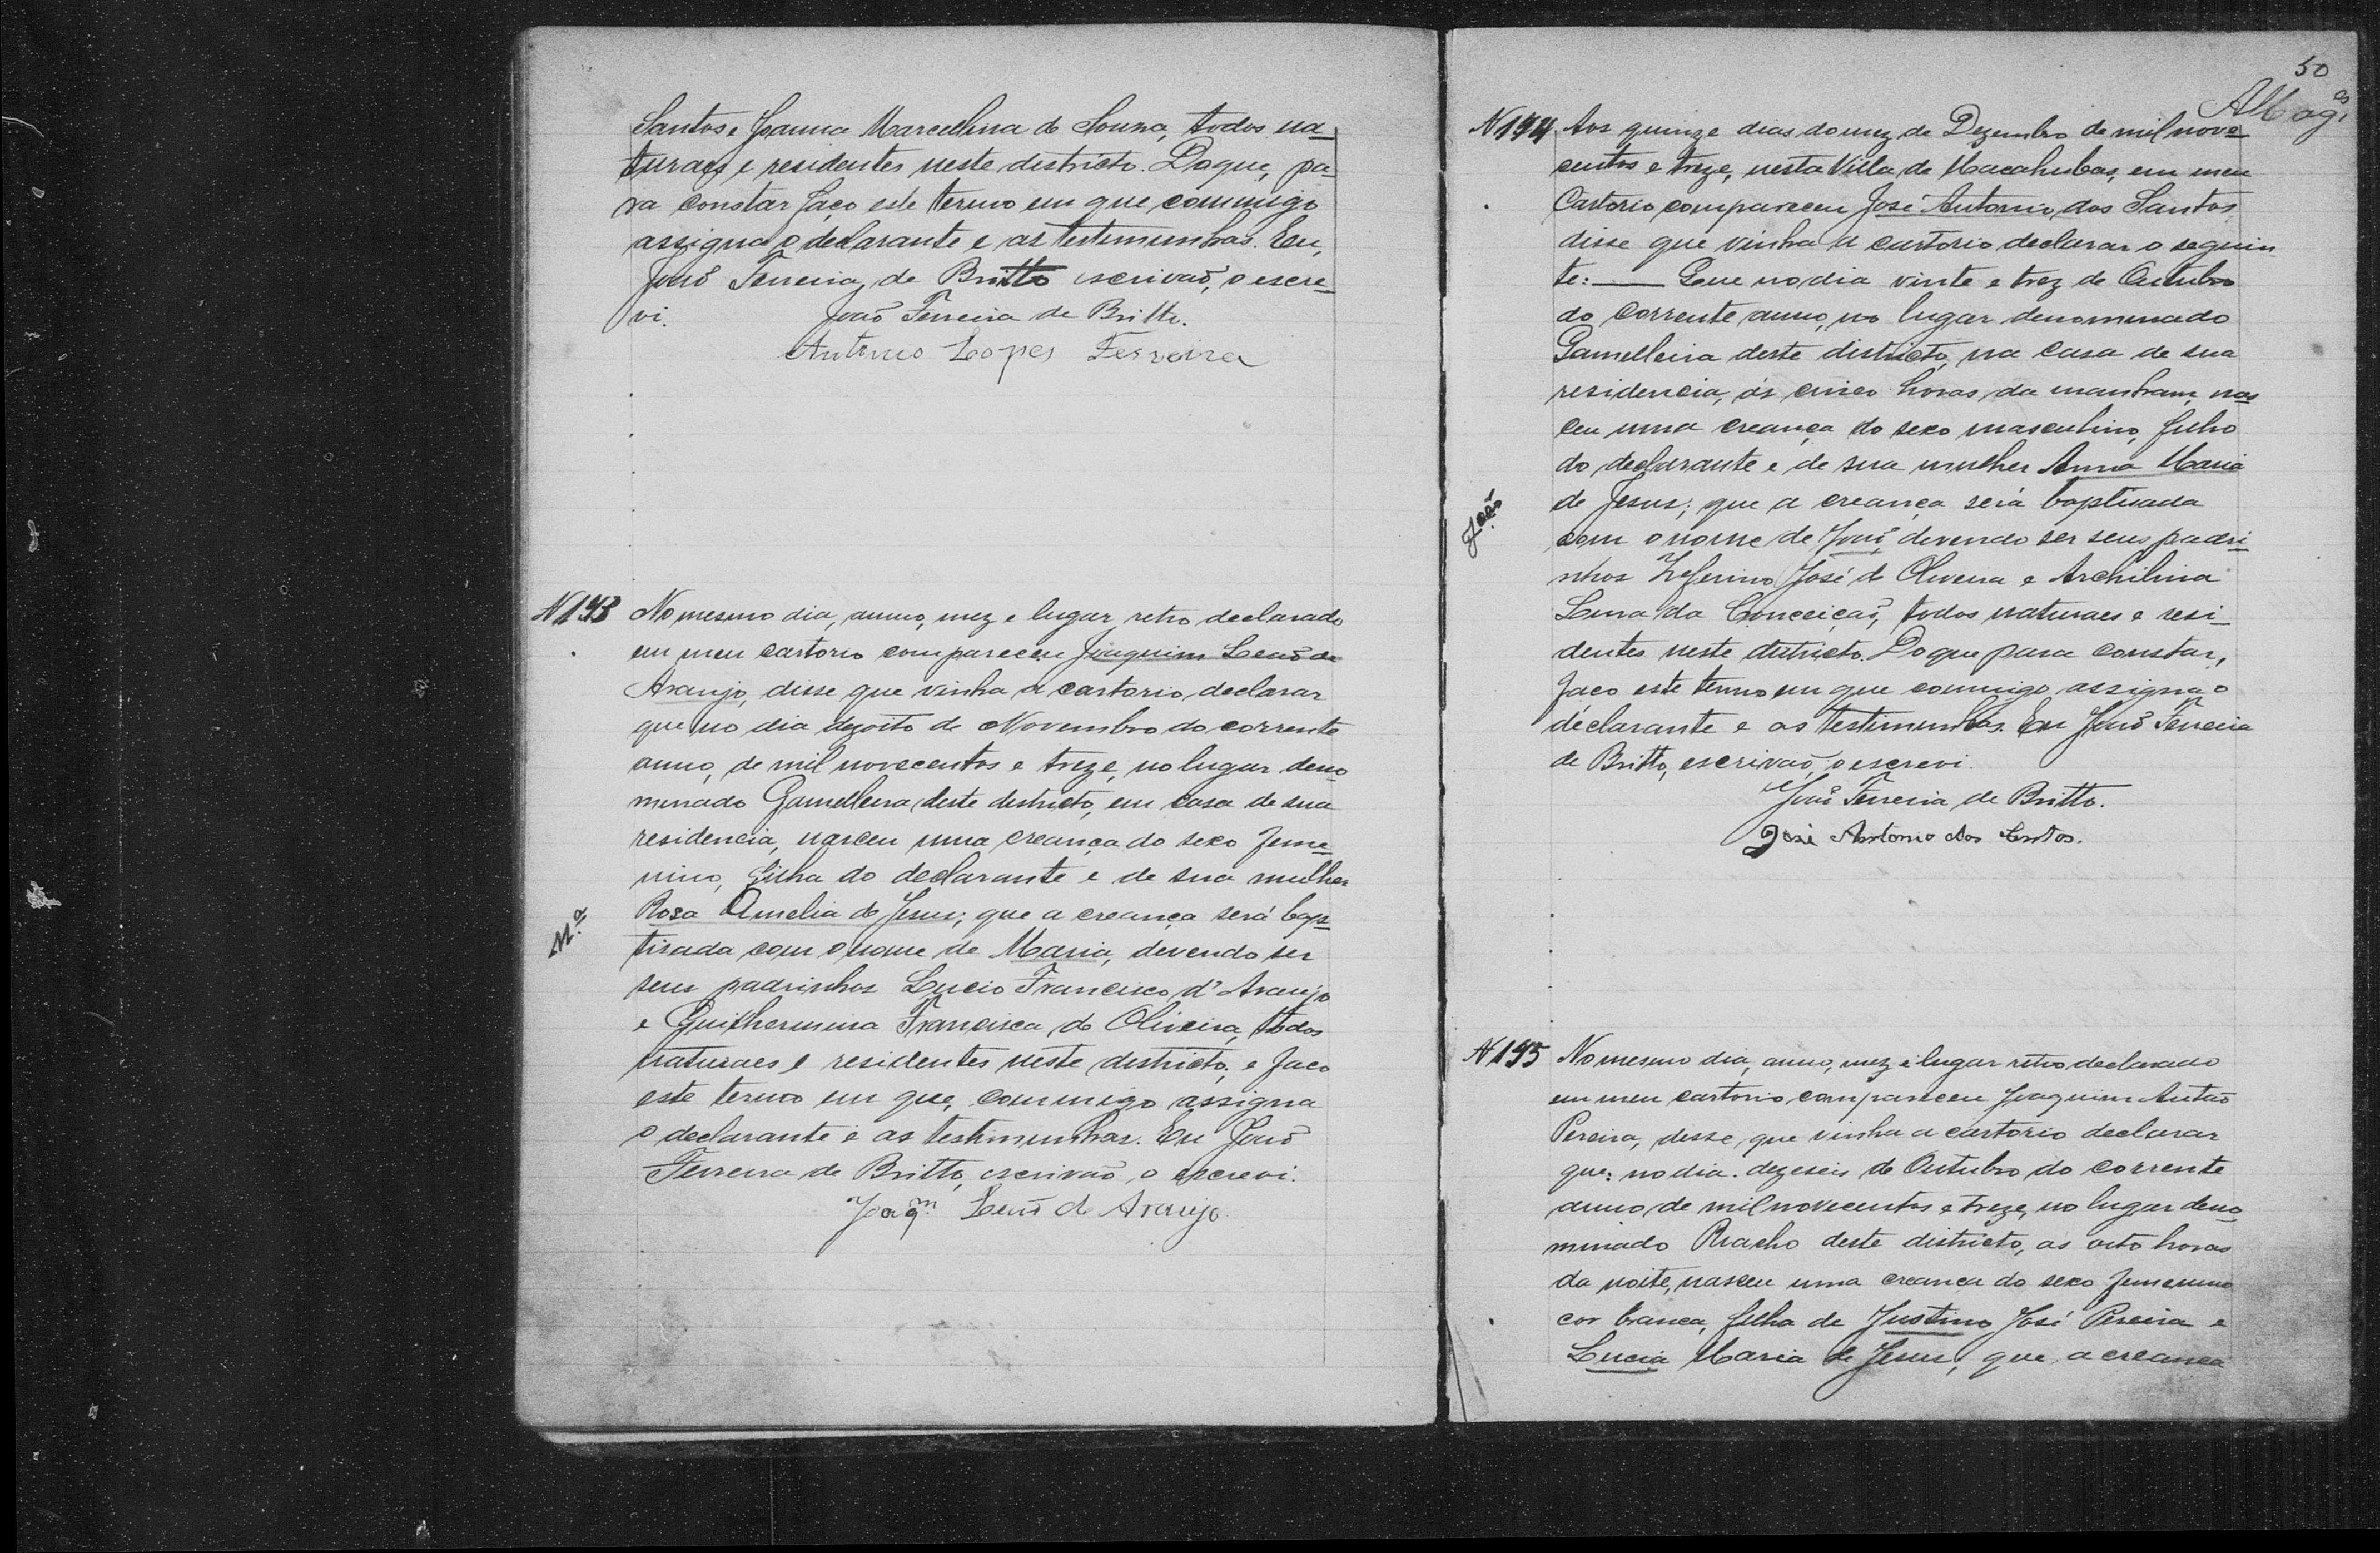 Santos e Joanna Marcellina de Souza, todos na-
turaes e residentes neste districto. Do que, pa-
ra constar faço este termo em que commigo
assigna o declarante e as testimunhas. Eu,
João Ferreira de Britto escrivaõ, o escre-
vi. João Ferreira de Britto.
Antonio Lopes Ferreira
N 193 No mesmo dia, anno, mez e lugar retro declarado
em meu cartorio compareceu Joaquim Leaõ de
Araujo, disse que vinha a cartorio declarar
que no dia dezoito de Novembro do corrente
anno, de mil novecentos e treze, no lugar deno-
minado Gamelleira deste districto, em casa de sua
residencia, nasceu uma creança do sexo feme-
nino, filha do declarante e de sua mulher
Rosa Amelia de Jesus; que a creança será bap-
M.ª
tisada com o nome de Maria, devendo ser
seus padrinhos Lucio Francisco d'Araujo
e Guilhermina Francisca de Oliveira, todos
naturaes e residentes neste districto, e faço
este termo em que, commigo assigna
o declarante e as testimunhas. Eu João
Ferreira de Britto, escrivaõ, o escrevi.
Joaqm. Leaõ de Araujo
50
N 194 Aos quinze dias do mez de Dezembro de mil nove-
centos e treze, nesta Villa de Macahubas, em meu
Cartorio compareceu José Antonio dos Santos
disse que vinha a cartorio declarar o seguin
te: — Que no dia vinte e trez de Outubro
do corrente anno, no lugar denominado
Gamelleira deste districto, na casa de sua
residencia, ás cinco horas da manham, nas
ceu uma creança do sexo masculino, filho
do declarante e de sua mulher Anna Maria
de Jesus; que a creança será baptisada
João
com o nome de João, devendo ser seus padri-
nhos Zeferino José de Oliveira e Archilina
Lina da Conceiçaõ, todos naturaes e resi-
dentes neste districto. Do que para constar,
faço este termo em que commigo assigna o
declarante e as testimunhas. Eu João Ferreira
de Britto, escrivaõ, o escrevi.
João Ferreira de Britto.
José Antonio dos Santos.
N 195 No mesmo dia, anno, mez e lugar retro declarado
em meu cartorio compareceu Joaquim Antaõ
Pereira, disse, que vinha a cartorio declarar
que: no dia dezeseis de Outubro do corrente
anno de mil novecentos e treze, no lugar deno-
minado Riacho deste districto, as oito horas
da noite, nasceu uma creança do sexo femenino
cor branca, filha de Justino José Pereira e
Lucia Maria de Jesus; que a creança